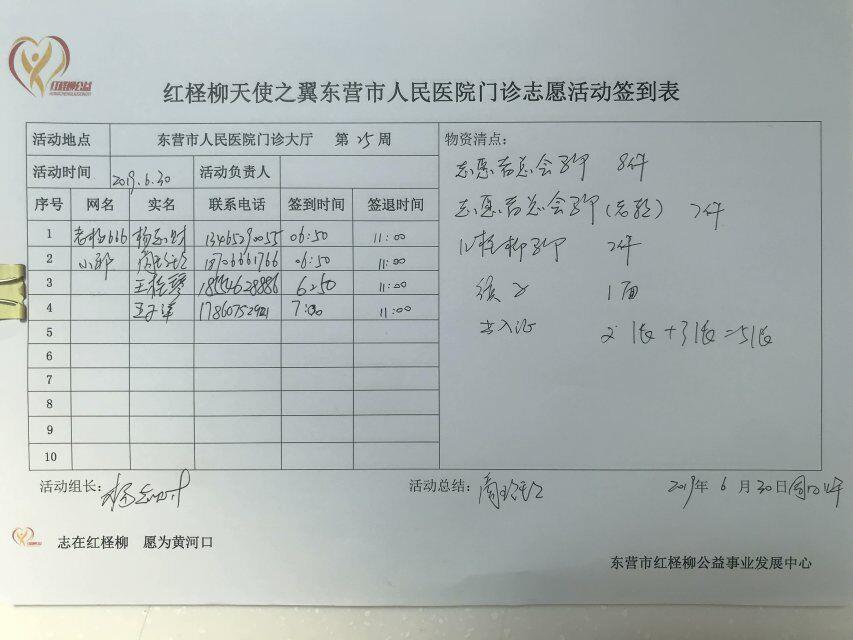 红柽柳公益
红柽柳天使之翼东营市人民医院门诊志愿活动签到表
活动地点 东营市人民医院门诊大厅 第25周
活动时间 2019.6.30 活动负责人
序号 网名 实名 联系电话 签到时间 签退时间
1 老杨666 13465290055 06:50 11:00
2 小郭 18706661766 06:50 11:00
3 18554628886 6:50 11:00
4 7:30 11:00
5
6
7
8
9
10
物资清点：
志愿者总会马甲 8件
志愿者总会马甲(志整) 2件
红柽柳马甲 2件
1面
出入证 2张+3张=5张
活动组长：
活动总结：
2019年 6 月 30日
志在红柽柳 愿为黄河口
东营市红柽柳公益事业发展中心